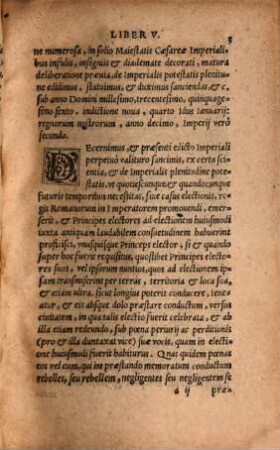 LIBER V. 3
ne numerosa, in solio Maiestatis Cæsareæ Imperiali-
bus infulis, insignijs & diademate decorati, matura
deliberatione præuia, de Imperialis potestatis plenitu
ne edidimus, statuimus, & duximus sanciendas & c,
sub anno Domini millesimo, trecentesimo, quinquage-
simo sexto, indictione noua, quarto Idus Ianuarij:
regnorum nostrorum, anno decimo, Imperij verò
secundo.
DEcernimus, & præsenti edicto Imperiali
perpetuò valituro sancimus, ex certa sci-
entia, & de Imperialis plenitudine pote-
statis, vt quotiescunque & quandocunque
futuris temporibus necesitas, siue casus electionis, regis
Romanorum in Imperatorem promouendi, emer-
serit, & Principes electores ad electionem huiusmodi
iuxta antiquam laudabilem consuetudinem habuerint
proficisci, vnusquisque Princeps elector, si & quando su-
per hoc fuerit requisitus, quoslibet Principes electo-
res suos, vel ipsorum nuntios, quos ad electionem ip-
sam transmiserint per terras, territoria & loca sua,
& etiam vltra, sicut longius poterit conducere, tene-
atur, & eis absque dolo præstare conductum, versus
ciuitatem, in qua talis electio fuerit celebrata, & ab
illa etiam redeundo, sub pœna periurij ac perditionis
(pro & illa duntaxat vice) suæ vocis, quam in electio
ne huiusmodi fuerit habiturus. Quas quidem pœnas
eos vel eum, qui in præstando memoratum conductum
rebelles, seu rebellem, negligentes seu negligentem se
a ij præ-